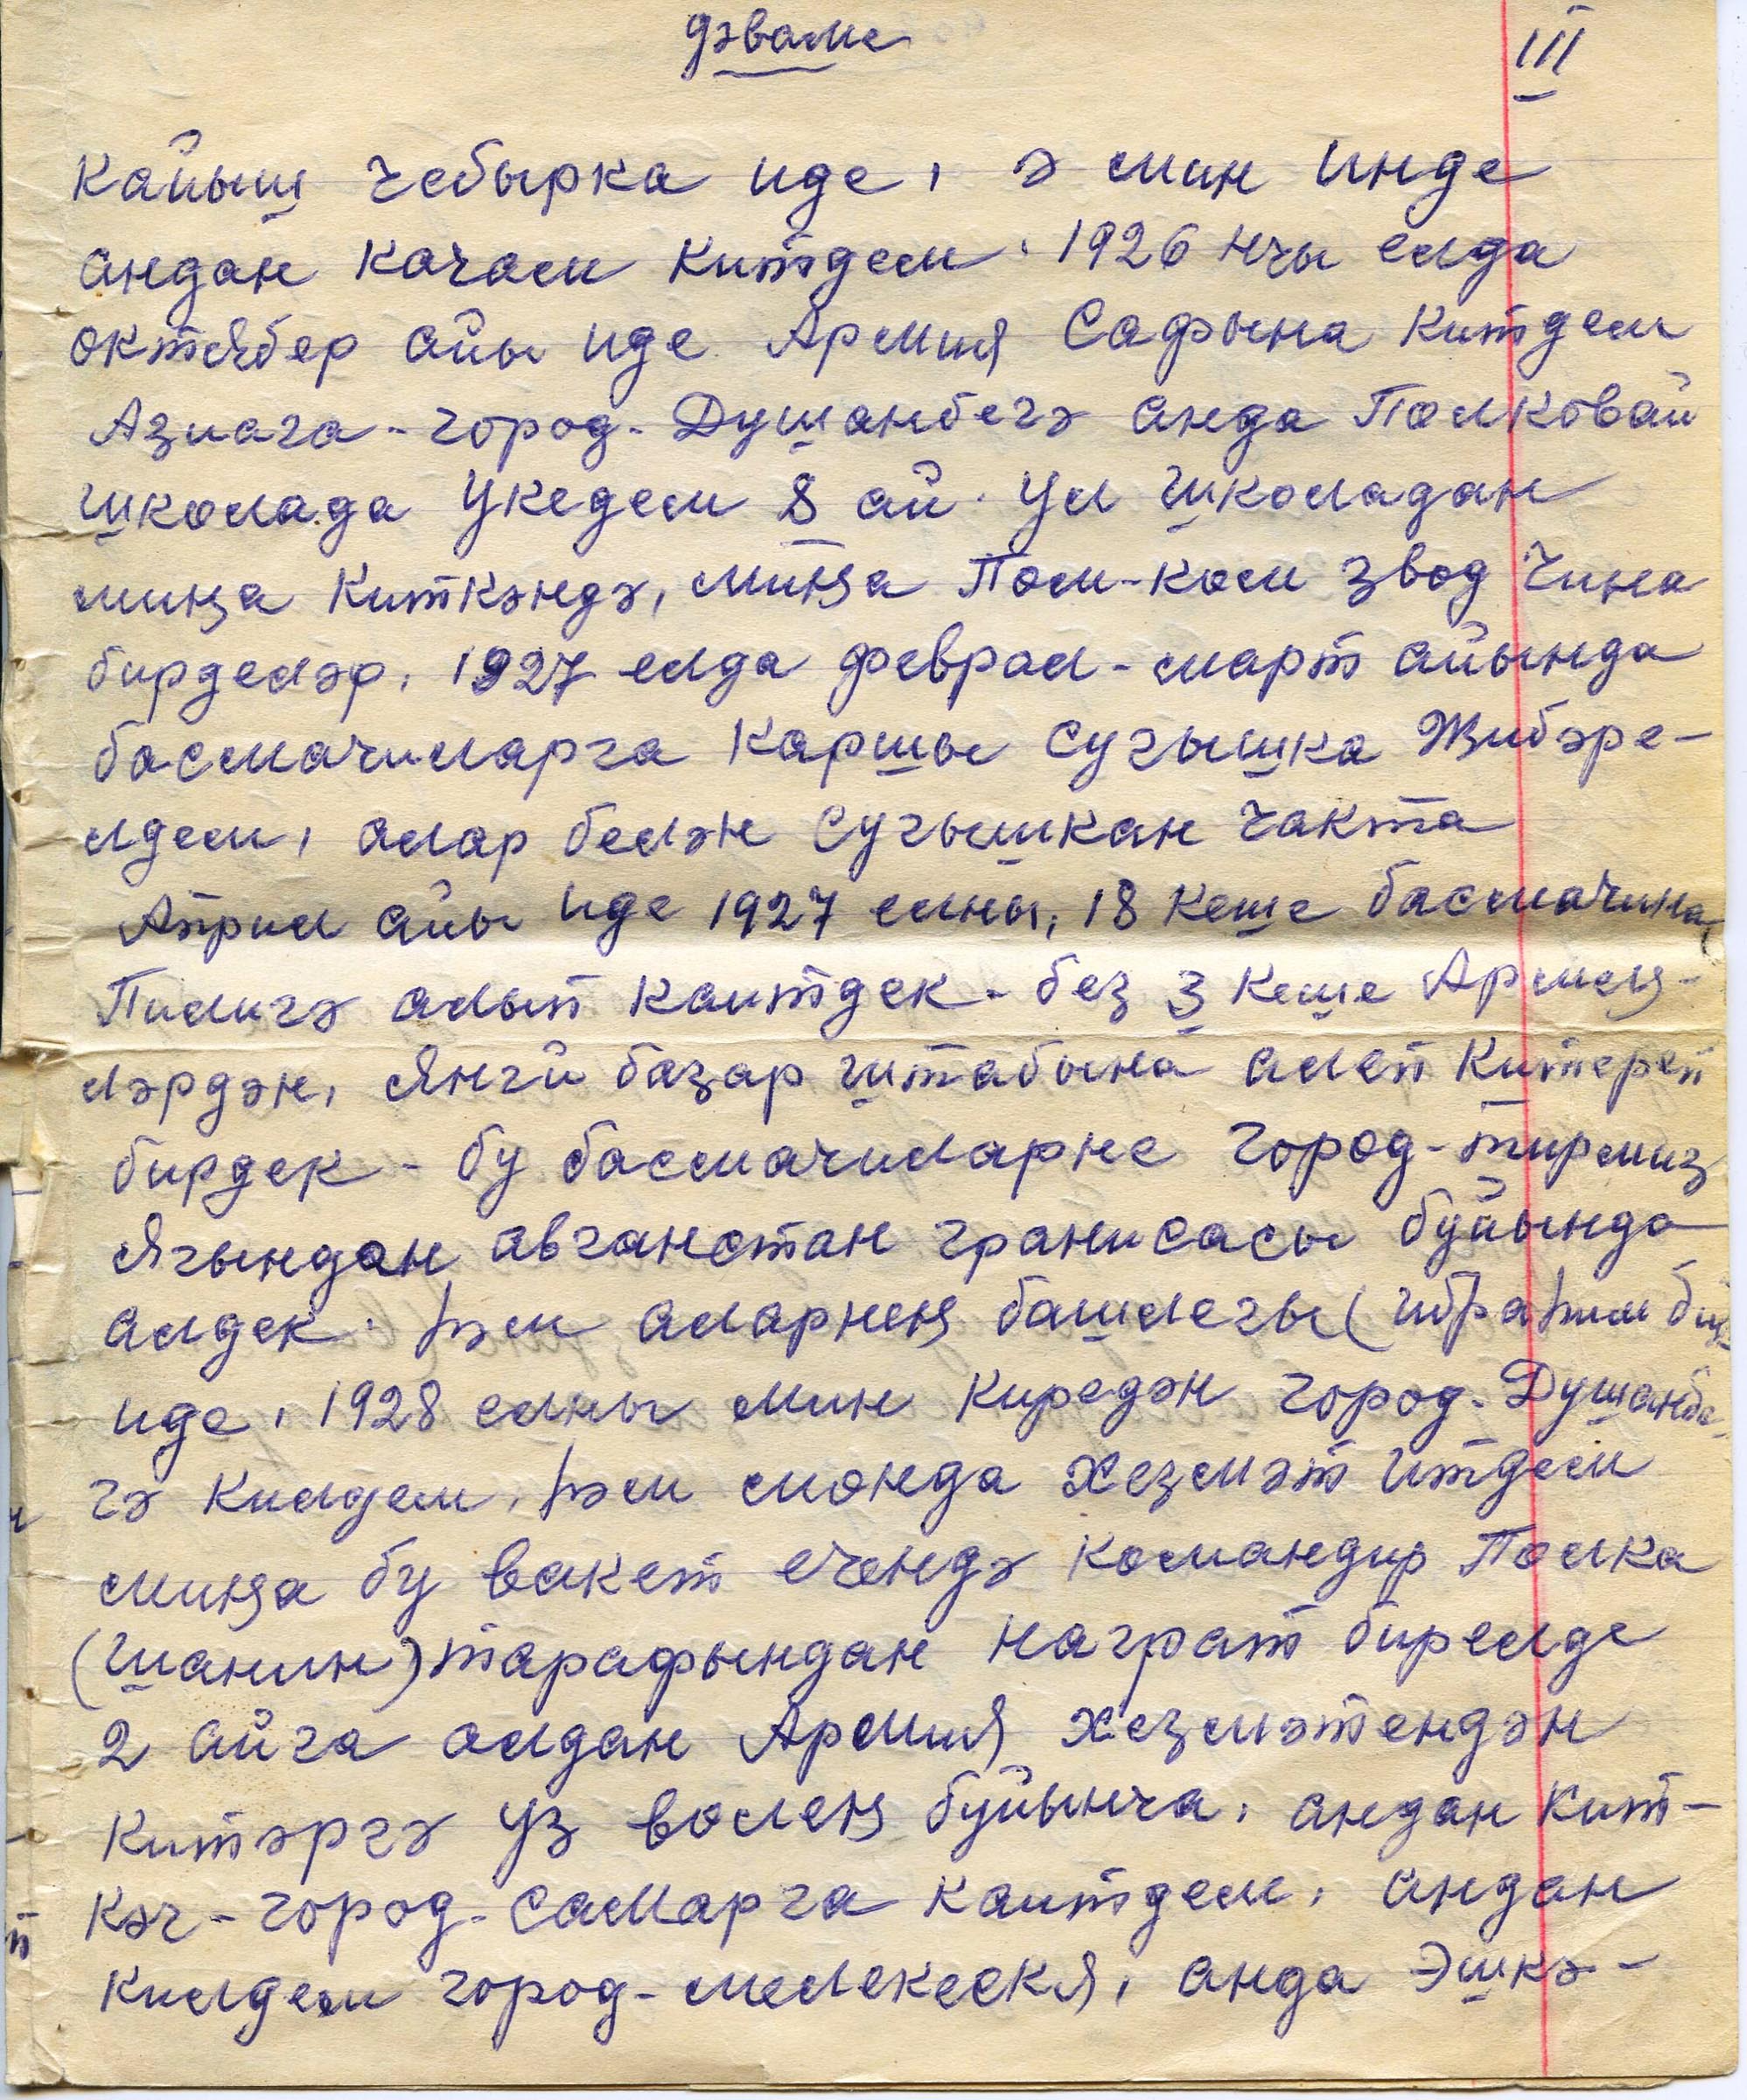 дэваме
III
Кайыш чебырка иде, э мин инде
андан качам китдем. 1926 нчы елда
октябер айы иде Армия Сафына китдем
Азиага - город - Душанбегэ анда Полковай
школада укедем 8 ай. ул школадан
миңа киткэндэ, миңа Пом-ком звод чина
бирделэр, 1927 елда феврал - март айында
басмачиларга каршы сугышка жибэре-
лдем, алар белэн сугышкан чакта
Април айы иде 1927 елны, 18 кеше басмачина
Пилигэ алып каитдек - без 3 кеше Армең-
лэрдэн, Янгй базар штабына алеп китереп
бирдек - бу басмачиларне город - тирмиз
ягындан авганстан гранисасы буйында
алдек. һэм аларнең башлегы (ибраһим биг
иде, 1928 елны мин киредэн город - Душанбе-
гэ килдем, һэм монда хезмэт итдем
миңа бу вакет ечендэ командир Полка
(шанин) тарафындан награт бирелде
2 айга алдан Армия хезмэтендэн
китэргэ уз волең буйынча, андан кит-
кэч - город - самарга каитдем, андан
килдем город - мелекеския, анда эшкэ-